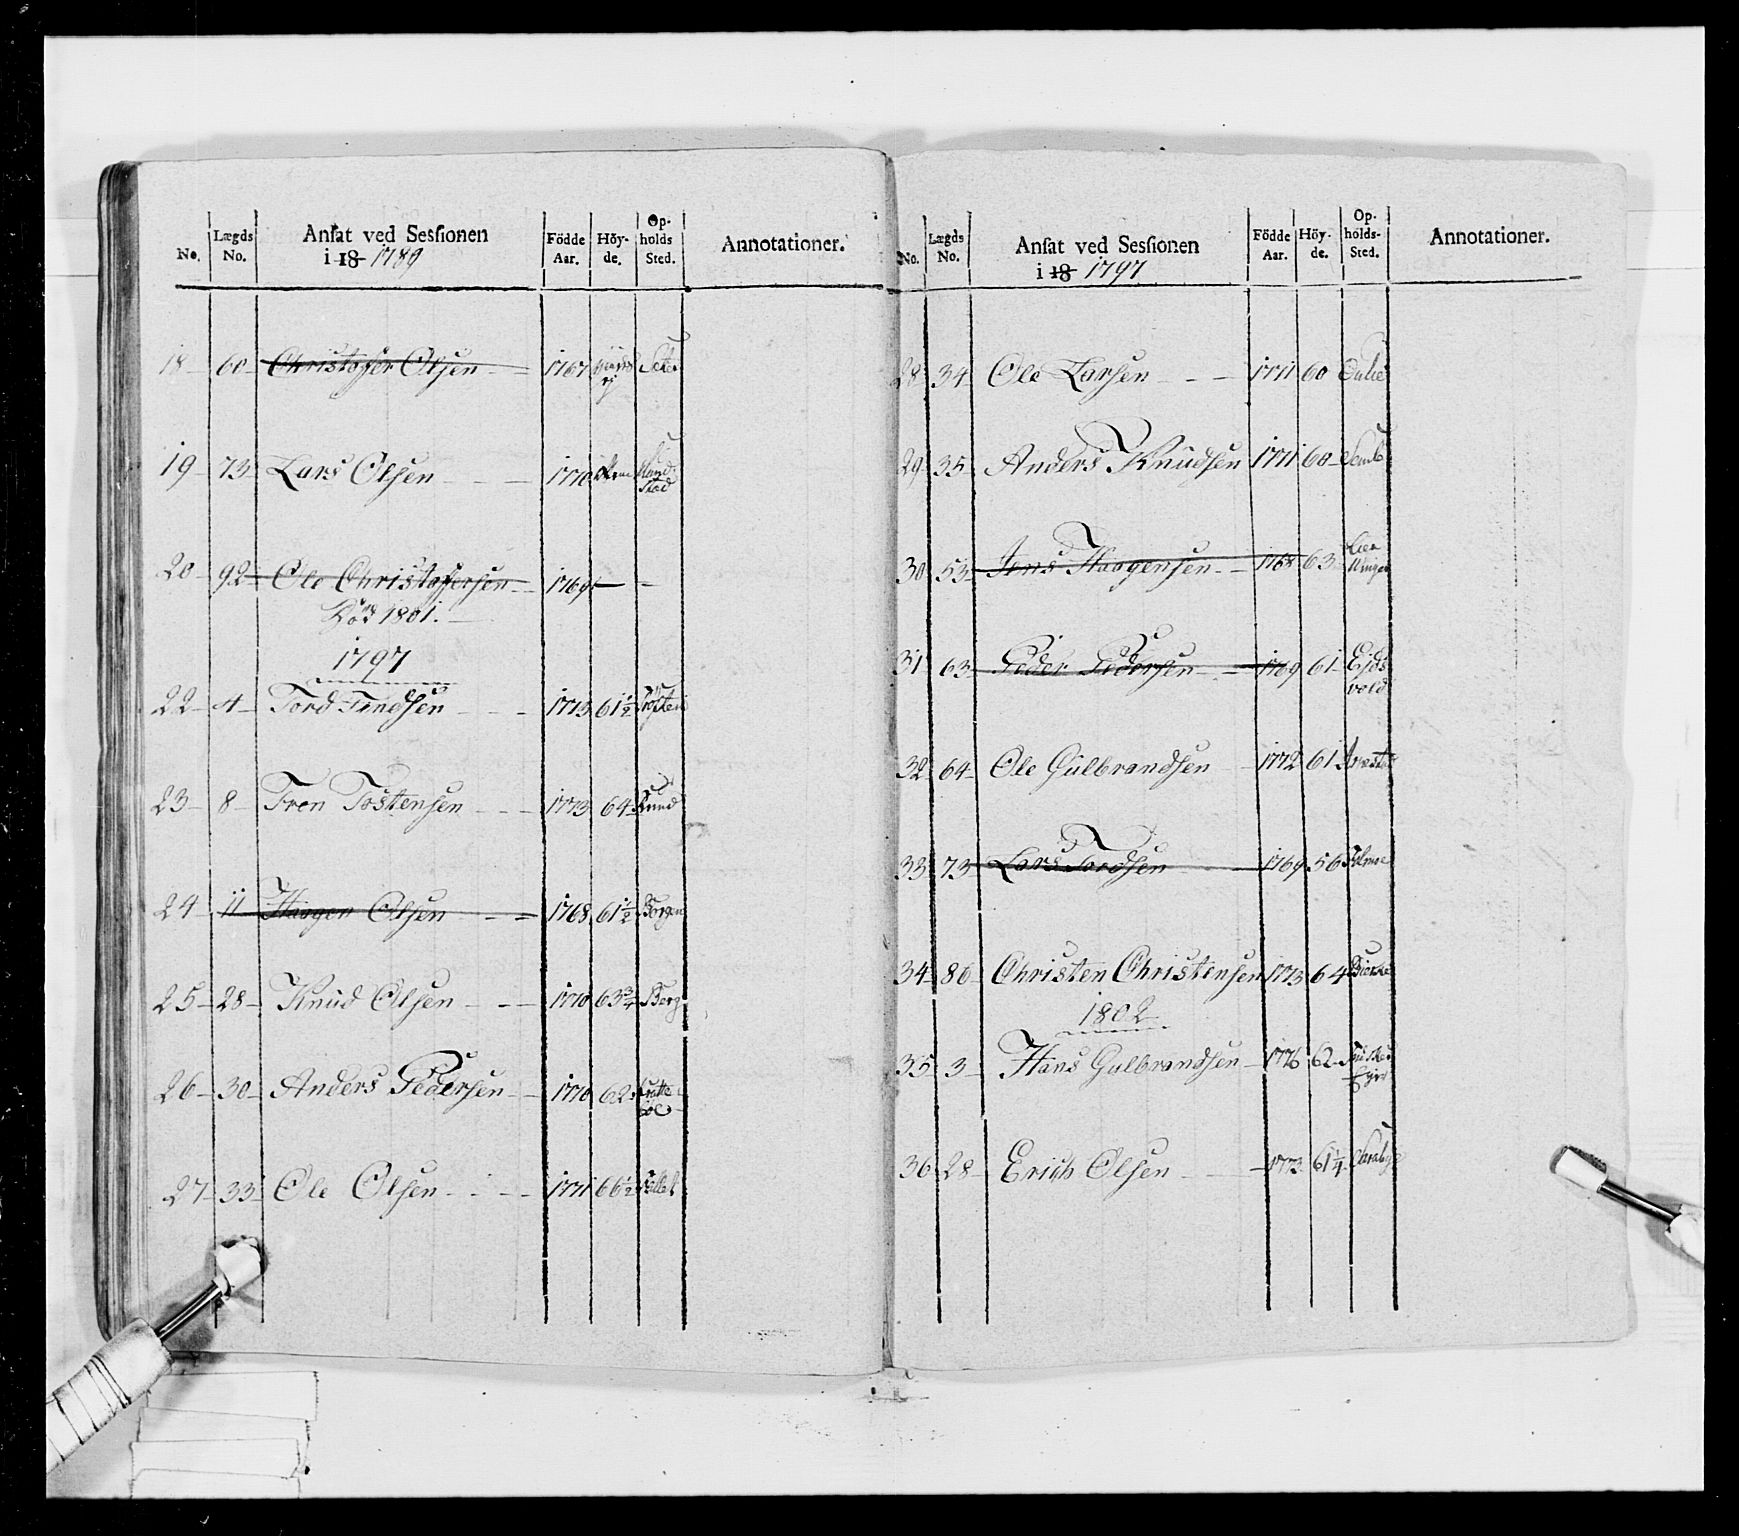 No. Lægds No. Ansat ved Sessionen i 18 1789 Födde Aar. Höyde. Opholds Sted. Annotationer.
18 - 60 - Christofer Olsen 1767
19 - 73 - Lars Olsen - - - 1770
20 - 92 - Ole Christophersen - - 1769 - -
1801.
1797
22 - 4 - Tord Findsen - - - 1773 61 1/2
23 - 8 - Tron Tostensen - - - 1773 64
24 - 11 - Haagen Olsen - - 1768 61 1/2 Borgen
25 - 28 - Knud Olsen - - - 1770 63 3/4 Berg
26 - 30 - Anders Pedersen - - 1770 62
27 - 33 - Ole Olsen - - - 1771 66 1/2
No. Lægds No. Ansat ved Sessionen i 18 1797 Födde Aar. Höyde. Opholds-Sted. Annotationer.
28 - 34 - Ole Larsen - - - 1771 60
29 - 35 - Anders Knudsen 1771 60 -
30 - 53 - Jens Haagensen - - 1768 63
31 - 63 - Peder Pedersen - - 1769 61 - Ejds
vold
32 - 64 - Ole Gulbrandsen - 1772 61
33 - 73 - Lars Tordsen - 1769 56
34 - 86 - Christen Christensen 1773 64
1802
35 - 3 - Hans Gulbrandsen - 1776 62 -
36 - 28 - Erich Olsen - - - 1773 61 1/4